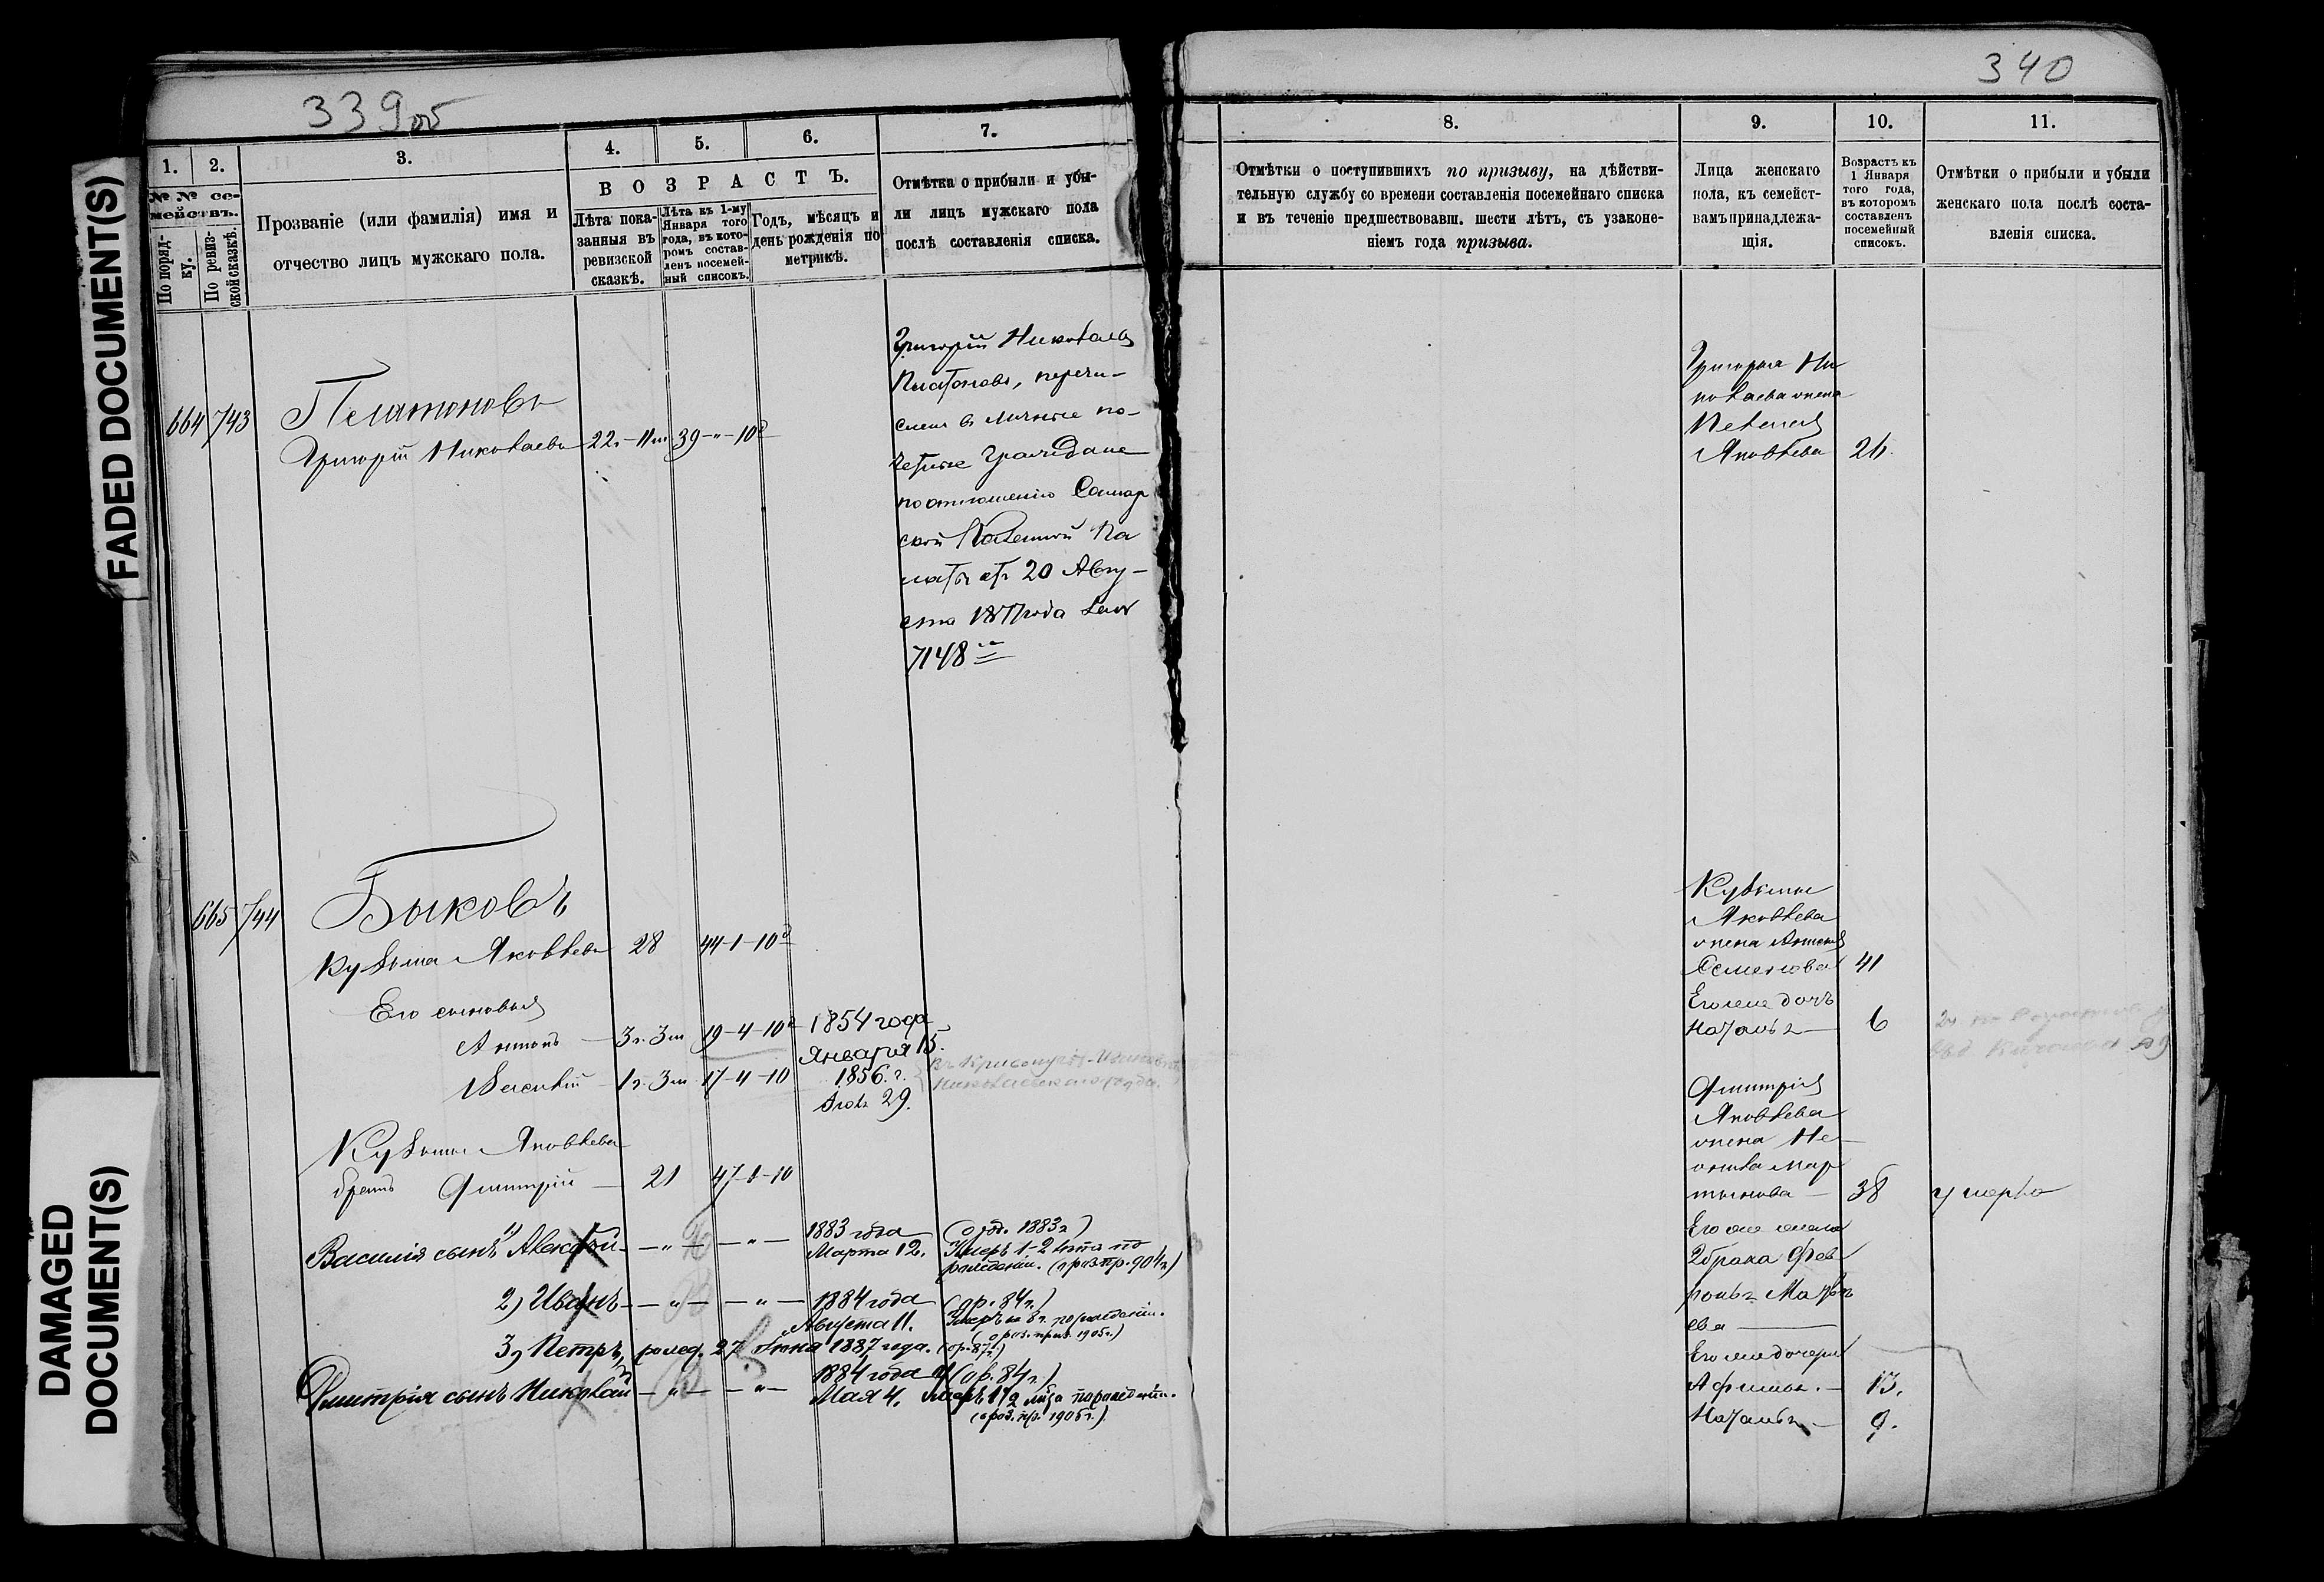 FADED DOCUMENT(S)
DAMAGED
DOCUMENT(S)
339об
1.
2.
3.
4.
5.
6.
7.
№№ се-
мействъ.
По поряд-
ку.
По ревиз-
ской сказкѣ.
Прозваніе (или фамилія) имя и
отчество лицъ мужскаго пола.
ВОЗРАСТЪ.
Лѣта пока-
занныя въ
ревизской
сказкѣ.
Лѣта къ 1-му
Января того
года, въ кото-
ромъ состав-
ленъ посемей-
ный списокъ.
Годъ, мѣсяцъ и
день рожденія по
метрикѣ.
Отмѣтка о прибыли и убы-
ли лицъ мужскаго пола
послѣ составленія списка.
664 743
Платоновъ
Григорій Николаевъ 22г-11м 39-"-10д
Григорій Николаевъ
Платоновъ, перечи-
сленъ въ личные по-
четные Граждане
по отношенію Самар
ской Казенной Па
латы отъ 20 Авгу-
ста 1877 года за №
7148
665 744
Быковъ
Кузьма Яковлевъ 28 44-1-10д
Его сыновья
Антонъ 3г. 3м 19-4-10д 1854 года
Января 15.
Василій 1г. 3м 17-4-10 1856. г.
29.
Николаевскаго уѣзда.
Кузьмы Яковлева
братъ Дмитрій 21 47-1-10
Василія сынъ 1) Алексѣй - - " - - " - 1883 года
Марта 12.
1883г)
Умеръ 1-2 лѣтъ по
рожденіи. 904г)
2) Иванъ - - " - - " - 1884 года
Августа 11.
(ор. 84г.)
Умеръ на 3 г. по рожденіи.
1905г.)
3) Петръ, рожд. 27 Іюня 1887 года. (ор. 87г.)
Дмитрія сынъ Николай - " - - " - 1884 года
Мая 4.
(ор. 84г.)
Умеръ 1 1/2 лѣта по рожденіи.
1905г.)
340
8.
9.
10.
11.
Отмѣтки о поступившихъ по призыву, на дѣйстви-
тельную службу со времени составленія посемейнаго списка
и въ теченіе предшествовавш. шести лѣтъ, съ узаконе-
ніемъ года призыва.
Лица женскаго
пола, къ семейст-
вамъ принадлежа-
щія.
Возрастъ къ
1 Января
того года,
въ которомъ
составленъ
посемейный
списокъ.
Отмѣтки о прибыли и убыли
женскаго пола послѣ соста-
вленія списка.
Григорія Ни
колаева жена
Пелагея
Яковлева 26.
Кузьмы
Яковлева
жена
Семенова 41
Его же дочь
Наталья 6
Дмитрія
Яковлева
жена Не-
онила Мар
тынова 38 умерла
Его же жена
2 брака Фев
ронья Матвѣ
ева
Его же дочери
Афимья. 13.
Наталья 9.